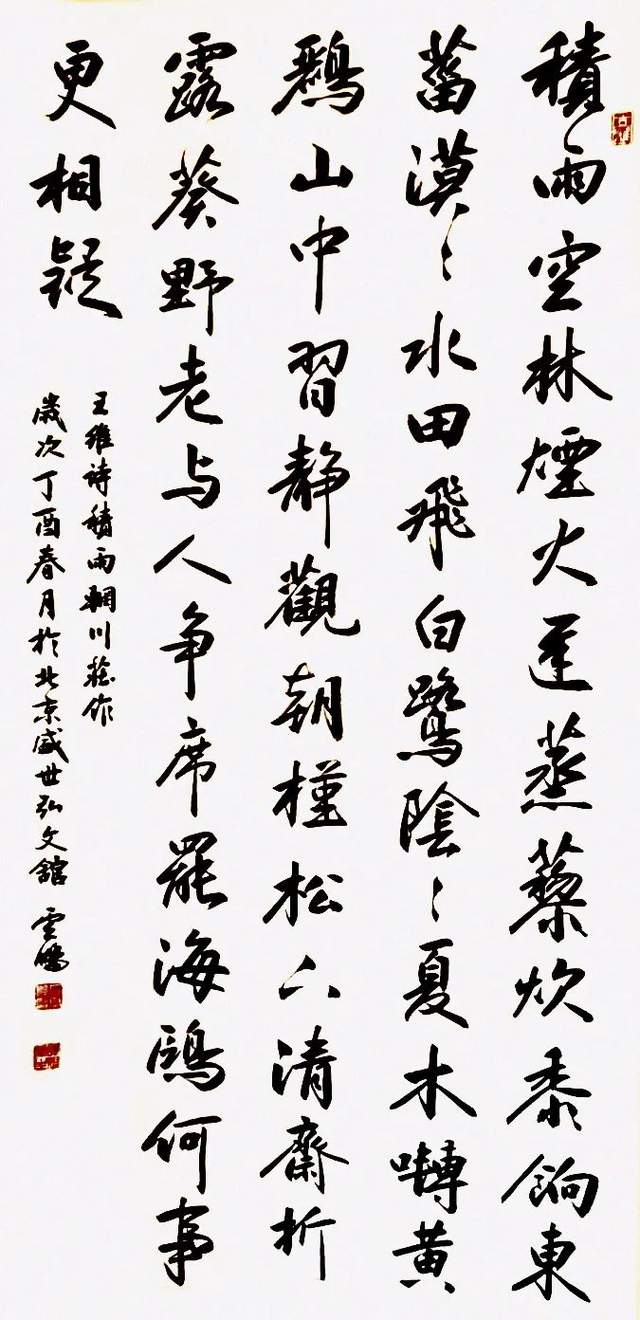 積雨空林煙火遲蒸藜炊黍餉東
菑漠〻水田飛白鷺陰〻夏木囀黃
鸝山中習靜觀朝槿松下清齋折
露葵野老与人争席罷海鷗何事
更相疑
王維詩積雨輞川莊作
歲次丁酉春月於北京盛世弘文舘